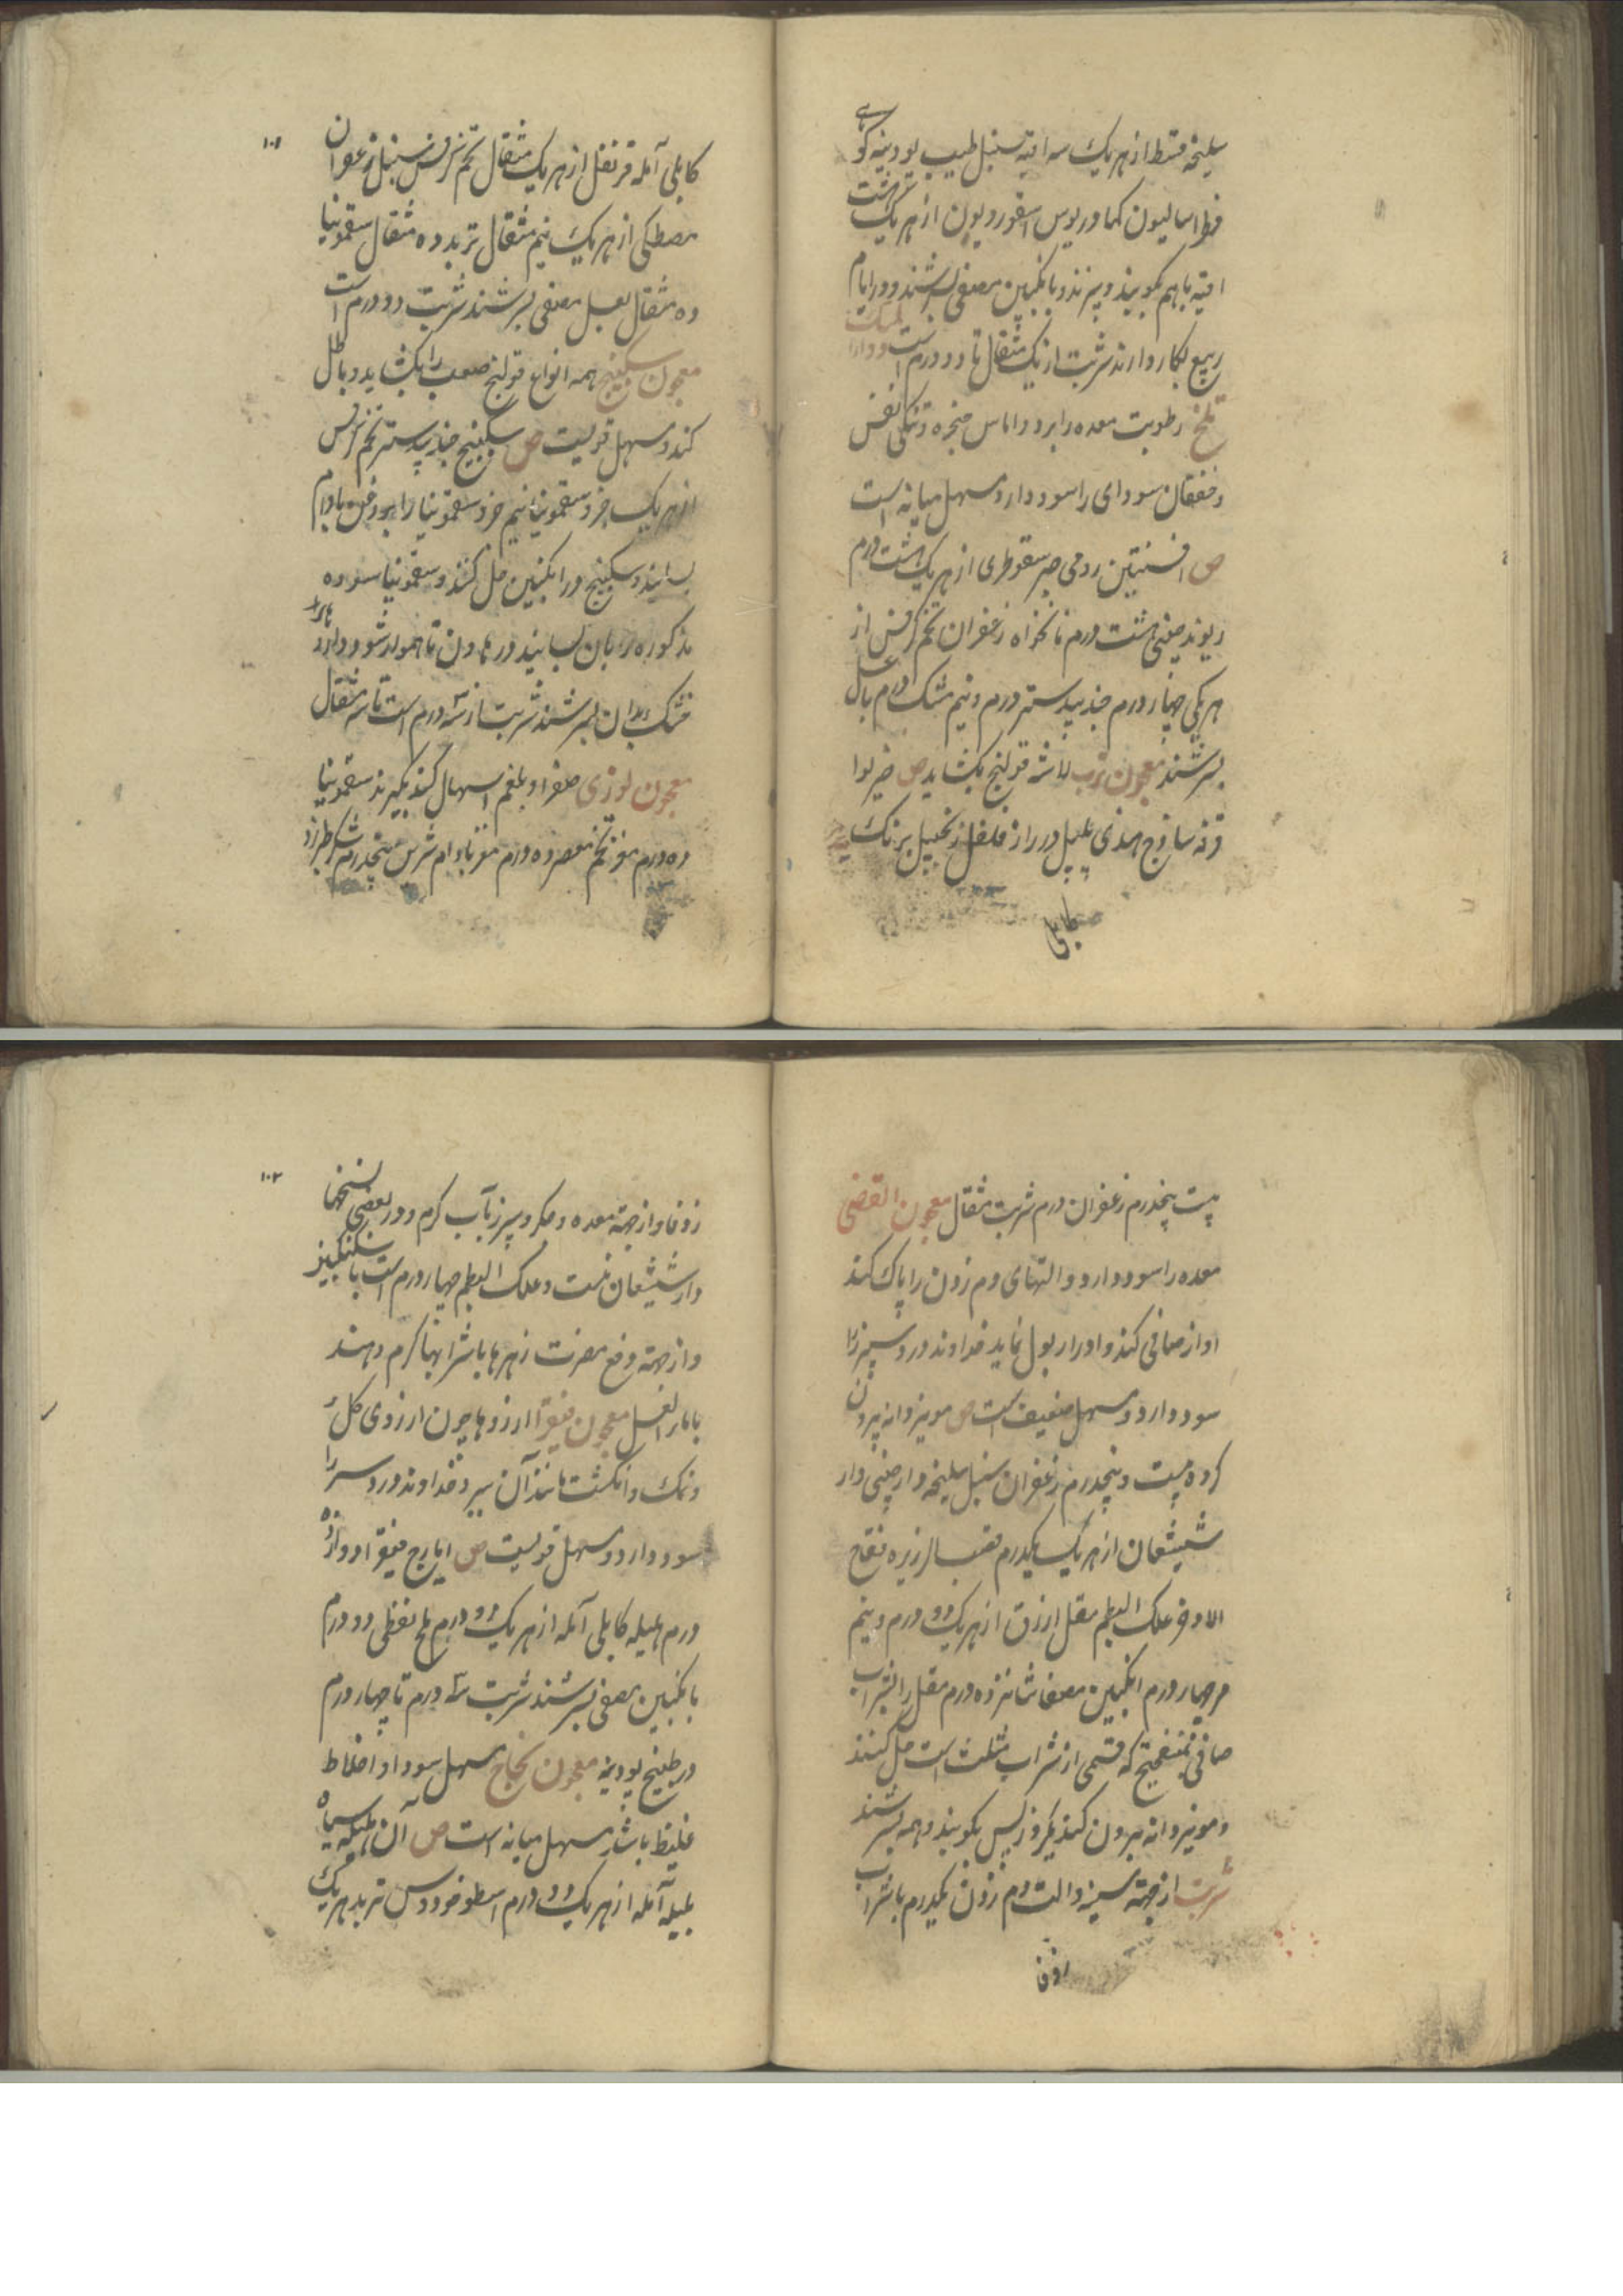 سلیخه قسط از هر یک سه اقیه سنبل طیب پودینه کوهی
فطراسالیون کمادریوس اسقوردیون از هر یک هشت
اقیه با هم بکوبند و ببیزند و بانگبین مصفی بسرشند و در ایام
ربیع بکار دارند شربت از یک مثقال تا دو درم است دواء المسک
تلخ رطوبت معده را ببرد و اماس حنجره و تنکی نفس
و خفقان سودای را سود دارد و مسهل میانه است
ص افسنتین رومی صبر سقوطری از هر یک هشت درم
ریوند صینی هشت درم نانخواه زعفران تخم کرفس از
هر یکی چهار درم جندبیدستر درم و نیم مشک درم بعسل
بسرشند معجون ترب قولنج بکشاید ص خیربوا
قرفه ساذج هندی پلپل دراز فلفل زنجبیل برنک
کابلی
۱۰۱
کابلی آمله قرنفل از هر یک مثقال تخم کرفس سنبل زعفران
مصطکی از هر یک نیم مثقال تربد ده مثقال سقمونیا
ده مثقال بعسل مصفی بسرشند شربت دو درم است
معجون سکبینج همه انواع قولنج صعب را بکشاید و باطل
کند و مسهل قویست ص سکبینج جندبیدستر تخم کرفس
از هر یک جزو سقمونیا نیم جزو سقمونیا را بروغن بادام
بسایند و سکبینج در انکبین حل کنند و سقمونیا سوده
مذکوره را بان بسایند در هاون تا هموار شود و داروهای
خشک بدان بسرشند شربت از سه درم است تا سه مثقال
معجون لوزی صفرا و بلغم اسهال کند بکیرند سقمونیا
ده درم مغز تخم معصفر ده درم مغز بادام شیرین پنجدرم شکر طبرزد
بیست پنجدرم زعفران درم شربت مثقال معجون القضی
معده را سود دارد و التهای دم زدن را پاک کند
اواز صافی کند و ادرار بول نماید خداوند درد سپرز را
سود دارد و مسهل ضعیف است ص مویز دانه بیرون
کرده بیست و پنجدرم زعفران سنبل سلیخه دارچینی دار
شیشغان از هر یک یکدرم قصب الزریره فقاح
الاذخر علک البطم مقل ازرق از هر یک دو درم و نیم
مر چهار درم انکبین مصفا شانزده درم مقل را بشراب
صافی میفختج که قسمی از شراب مثلث است حل کنند
و مویز دانه بیرون کنند یکروز پس بکوبند و همه بسرشند
شربت از جهة سینه و الت دم زدن یکدرم با شراب
زوفا
۱۰۲
زوفا و از جهة معده و جکر و سپرز بآب کرم و در بعضی نسخها
دارشیشغان نیست و علک البطم چهار درم است با سکنکبین
و از جهة دفع مضرت زهرها با شرابهای کرم دهند
با ماء العسل معجون فیقرا ارزوها چون ارزوی کل
و نمک و انکشت مانند آن ببرد خداوند درد سر را
سود دارد و مسهل قویست ص ایارج فیقرا دوازده
درم هلیله کابلی آمله از هر یک دو درم ملح نفطی دو درم
بانکبین مصفی بسرشند شربت سه درم تا چهار درم
در طبیخ پودینه معجون نجاح مسهل سودا و اخلاط
غلیظ باشد مسهل میانه است ص آن هلیله سیاه
بلیله آمله از هر یک دو درم اسطوخودوس تربد هر یک